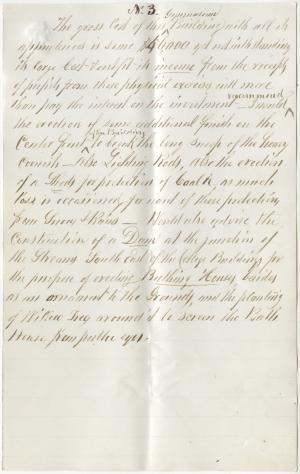 N. 3.
Gymnasium
The gross Cost of this Building with all its
appurtenances is some $46,000 yet notwithstanding
its large Cost the income from the receipt
of profits from these physical exercises will more
than pay the interest on the investment – I would
recommend
the erection of some additional finish on the
Center front to break the long sweep of the heavy
of the Building
Cornice – Also Lightning Rods, also the erection
of a Sheds for protection of Coal &c, as much
loss is occasioned, for want of these protections
from Snow & Rains – Would also advise the
Construction of a Dam at the junction of
the Streams South East of the College Building for
the purpose of erecting Bathing Houses, besides
as an ornament to the Grounds, and the planting
of Willow Trees around it to screen the Bath
House from public eyes.